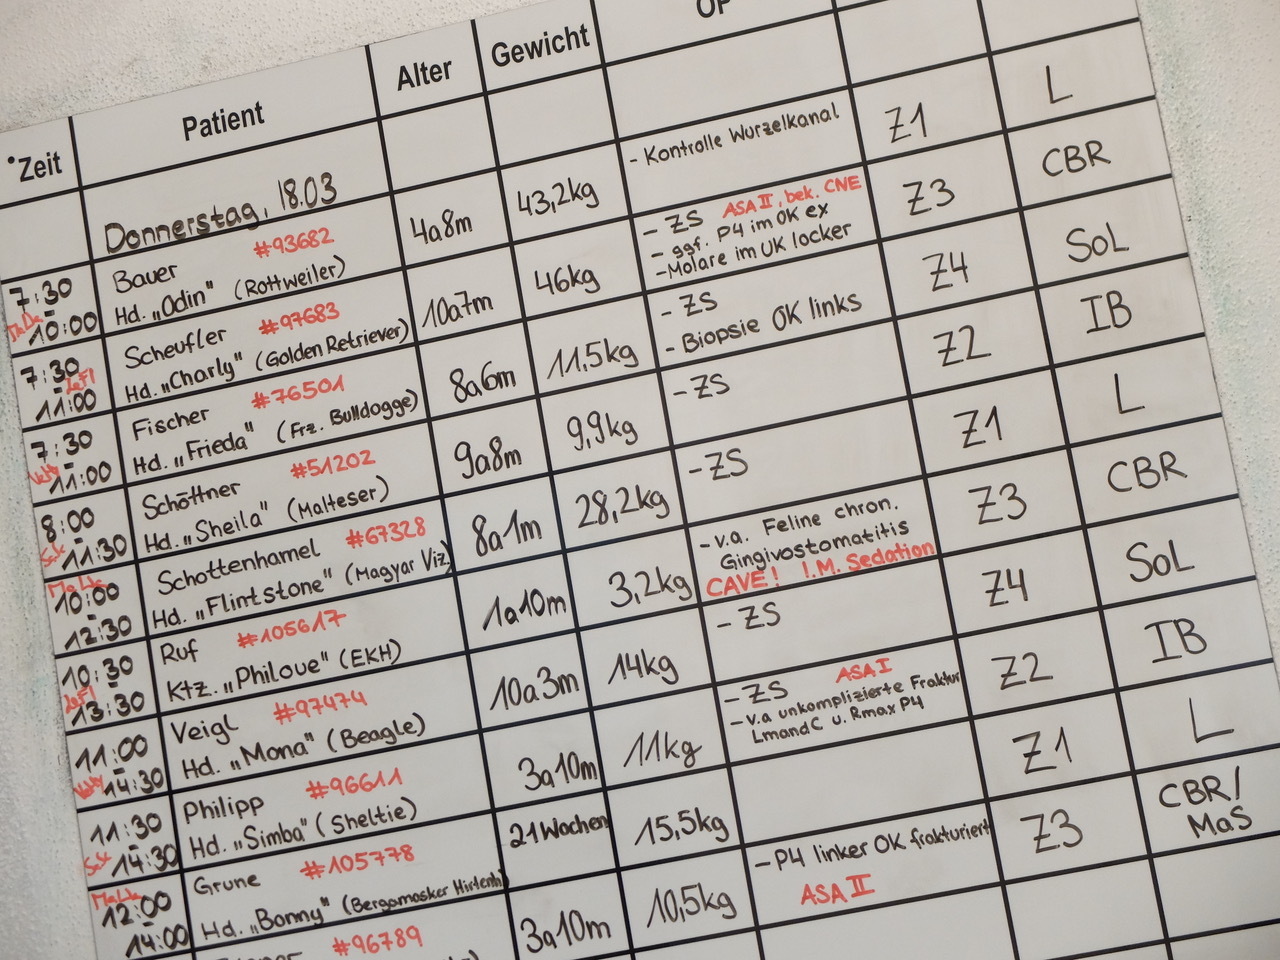 Zeit Patient Alter Gewicht OP
Donnerstag, 18.03
7:30 - 10:00
Bauer #93682
Hd. „Odin" (Rottweiler)
4a8m 43,2kg
- Kontrolle Wurzelkanal
Z1 L
7:30 - 11:00
Scheufler #97683
Hd. „Charly" (Golden Retriever)
10a7m 46kg
- ZS ASA II, bek. CNE
- ggf. P4 im OK ex
- Molare im UK locker
Z3 CBR
7:30 - 11:00
Fischer #76501
Hd. „Frieda" (Frz. Bulldogge)
8a6m 11,5kg
- ZS
- Biopsie OK links
Z4 SoL
8:00 - 11:30
Schöttner #51202
Hd. „Sheila" (Malteser)
9a8m 9,9kg
- ZS
Z2 IB
10:00 - 12:30
Schottenhamel #67328
Hd. „Flintstone" (Magyar Viz)
8a1m 28,2kg
- ZS
Z1 L
10:30 - 13:30
Ruf #105617
Ktz. „Philoue" (EKH)
1a10m 3,2kg
- v.a. Feline chron.
Gingivostomatitis
CAVE! I.M. Sedation
Z3 CBR
11:00 - 14:30
Veigl #97474
Hd. „Mona" (Beagle)
10a3m 14kg
- ZS
Z4 SoL
11:30 - 14:30
Philipp #96611
Hd. „Simba" (Sheltie)
3a10m 11kg
- ZS ASA I
- v.a unkomplizierte Fraktur
LmandC u. Rmax P4
Z2 IB
12:00 - 14:00
Grune #105778
Hd. „Bonny" (Bergamasker Hirtenh)
21Wochen 15,5kg
Z1 L
#96789
3a10m 10,5kg
- P4 linker OK frakturiert
ASA II
Z3 CBR/
MaS